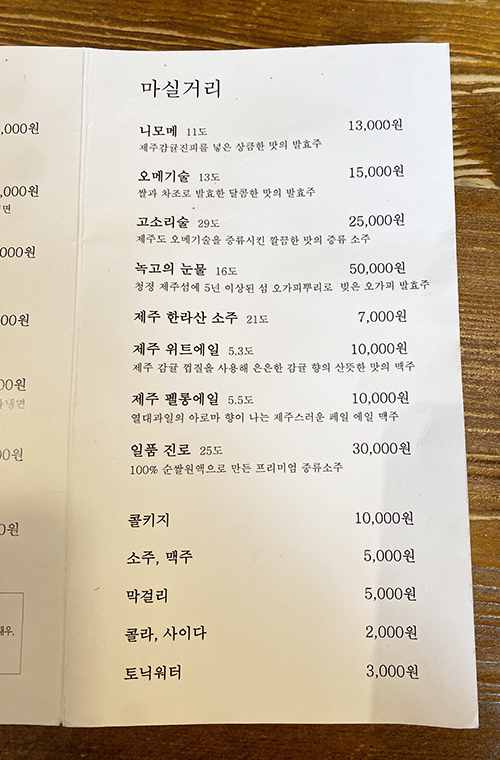 마실거리
니모메 11도 13,000원
제주감귤진피를 넣은 상큼한 맛의 발효주
오메기술 13도 15,000원
쌀과 차조로 발효한 달콤한 맛의 발효주
고소리술 29도 25,000원
제주도 오메기술을 증류시킨 깔끔한 맛의 증류 소주
녹고의 눈물 16도 50,000원
청정 제주섬에 5년 이상된 섬 오가피뿌리로 빚은 오가피 발효주
제주 한라산 소주 21도 7,000원
제주 위트에일 5.3도 10,000원
제주 감귤 껍질을 사용해 은은한 감귤 향의 산뜻한 맛의 맥주
제주 펠롱에일 5.5도 10,000원
열대과일의 아로마 향이 나는 제주스러운 페일 에일 맥주
일품 진로 25도 30,000원
100% 순쌀원액으로 만든 프리미엄 증류소주
콜키지 10,000원
소주, 맥주 5,000원
막걸리 5,000원
콜라, 사이다 2,000원
토닉워터 3,000원